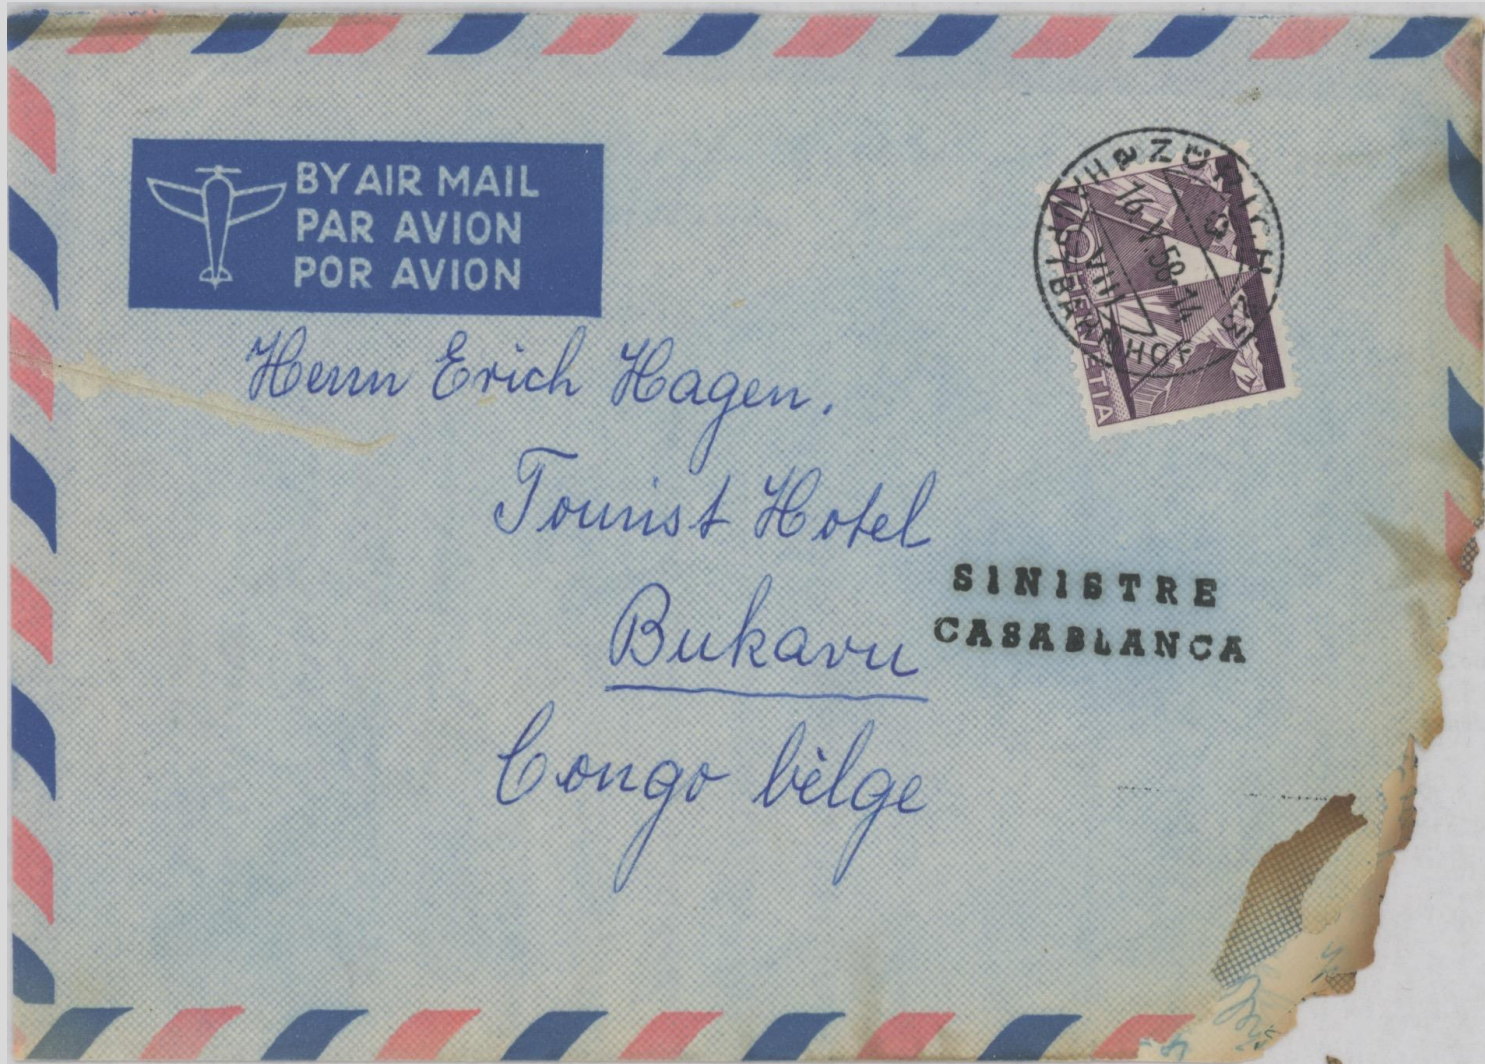 BY AIR MAIL
PAR AVION
POR AVION
ZÜRICH 23
16.V.58.14
VIII
BAHNHOF
HELVETIA
Herrn Erich Hagen.
Tourist Hotel
Bukavu
Congo bèlge
SINISTRE
CASABLANCA